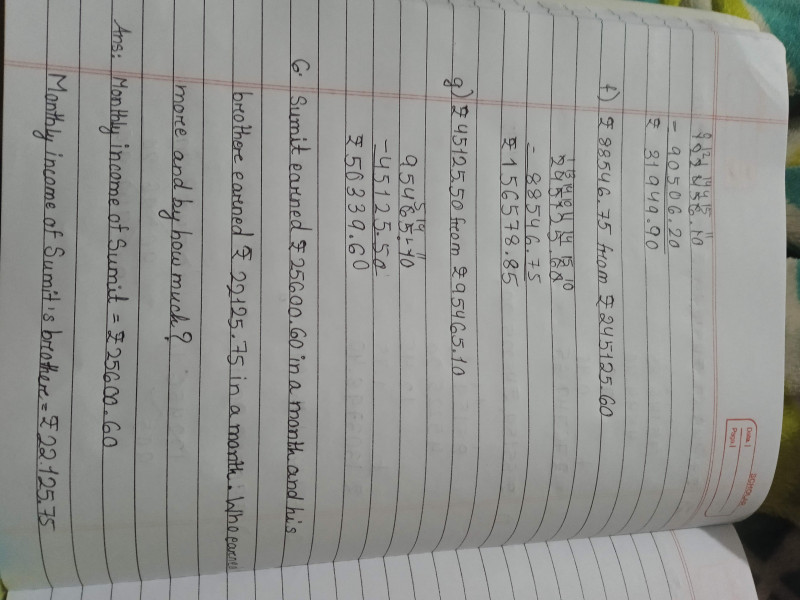 SCHOLAR
Date
Page
- 90506.20
₹ 31949.90
f) ₹ 88546.75 from ₹ 245125.60
- 88546.75
₹ 156578.85
g) ₹ 45125.50 from ₹ 95465.10
5 14 11
95465.10
- 45125.50
₹ 50339.60
6. Sumit earned ₹ 25600.60 in a month and his
brothere earned ₹ 22125.75 in a month. Who earns
more and by how much?
Ans: Monthly income of Sumit = ₹ 25600.60
Monthly income of Sumit's brothere = ₹ 22.125.75